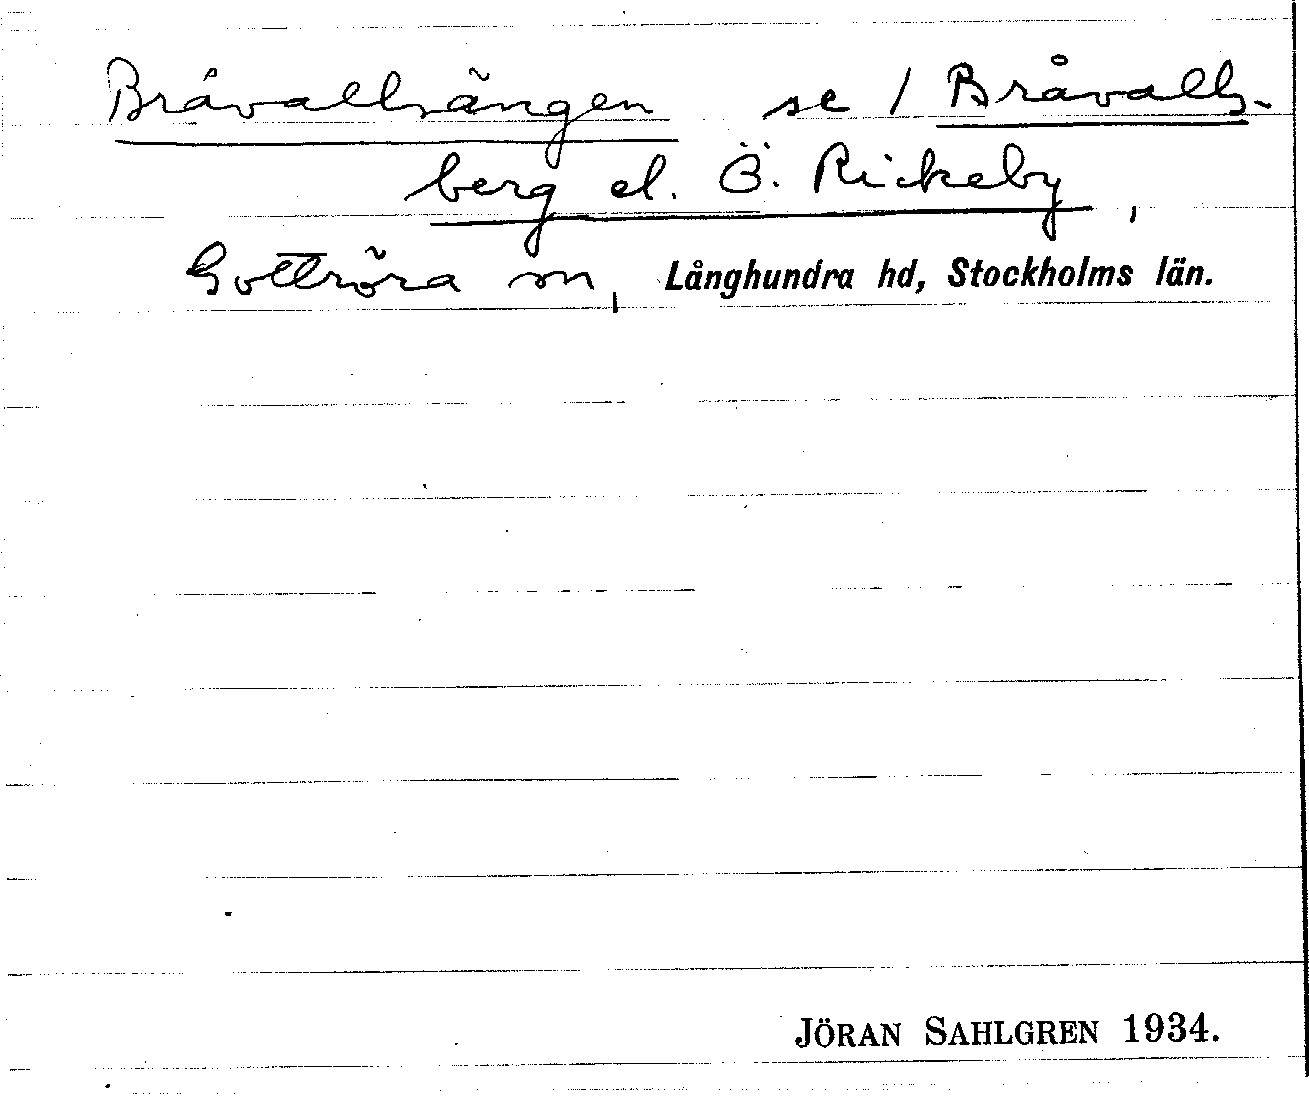 Bråvallsängen se / Bråvalls-
berg el. Ö. Rickeby,
Gottröra sn, Långhundra hd, Stockholms län.
JÖRAN SAHLGREN 1934.